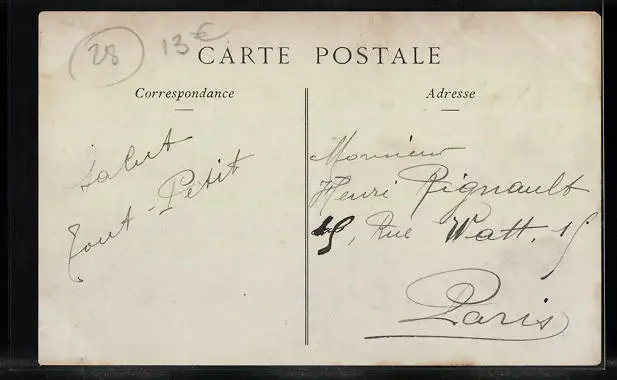 28 13€
CARTE POSTALE
Correspondance
Salut
Tout-Petit
Adresse
Monsieur
Henri Rignault
15, Rue Watt. 15
Paris